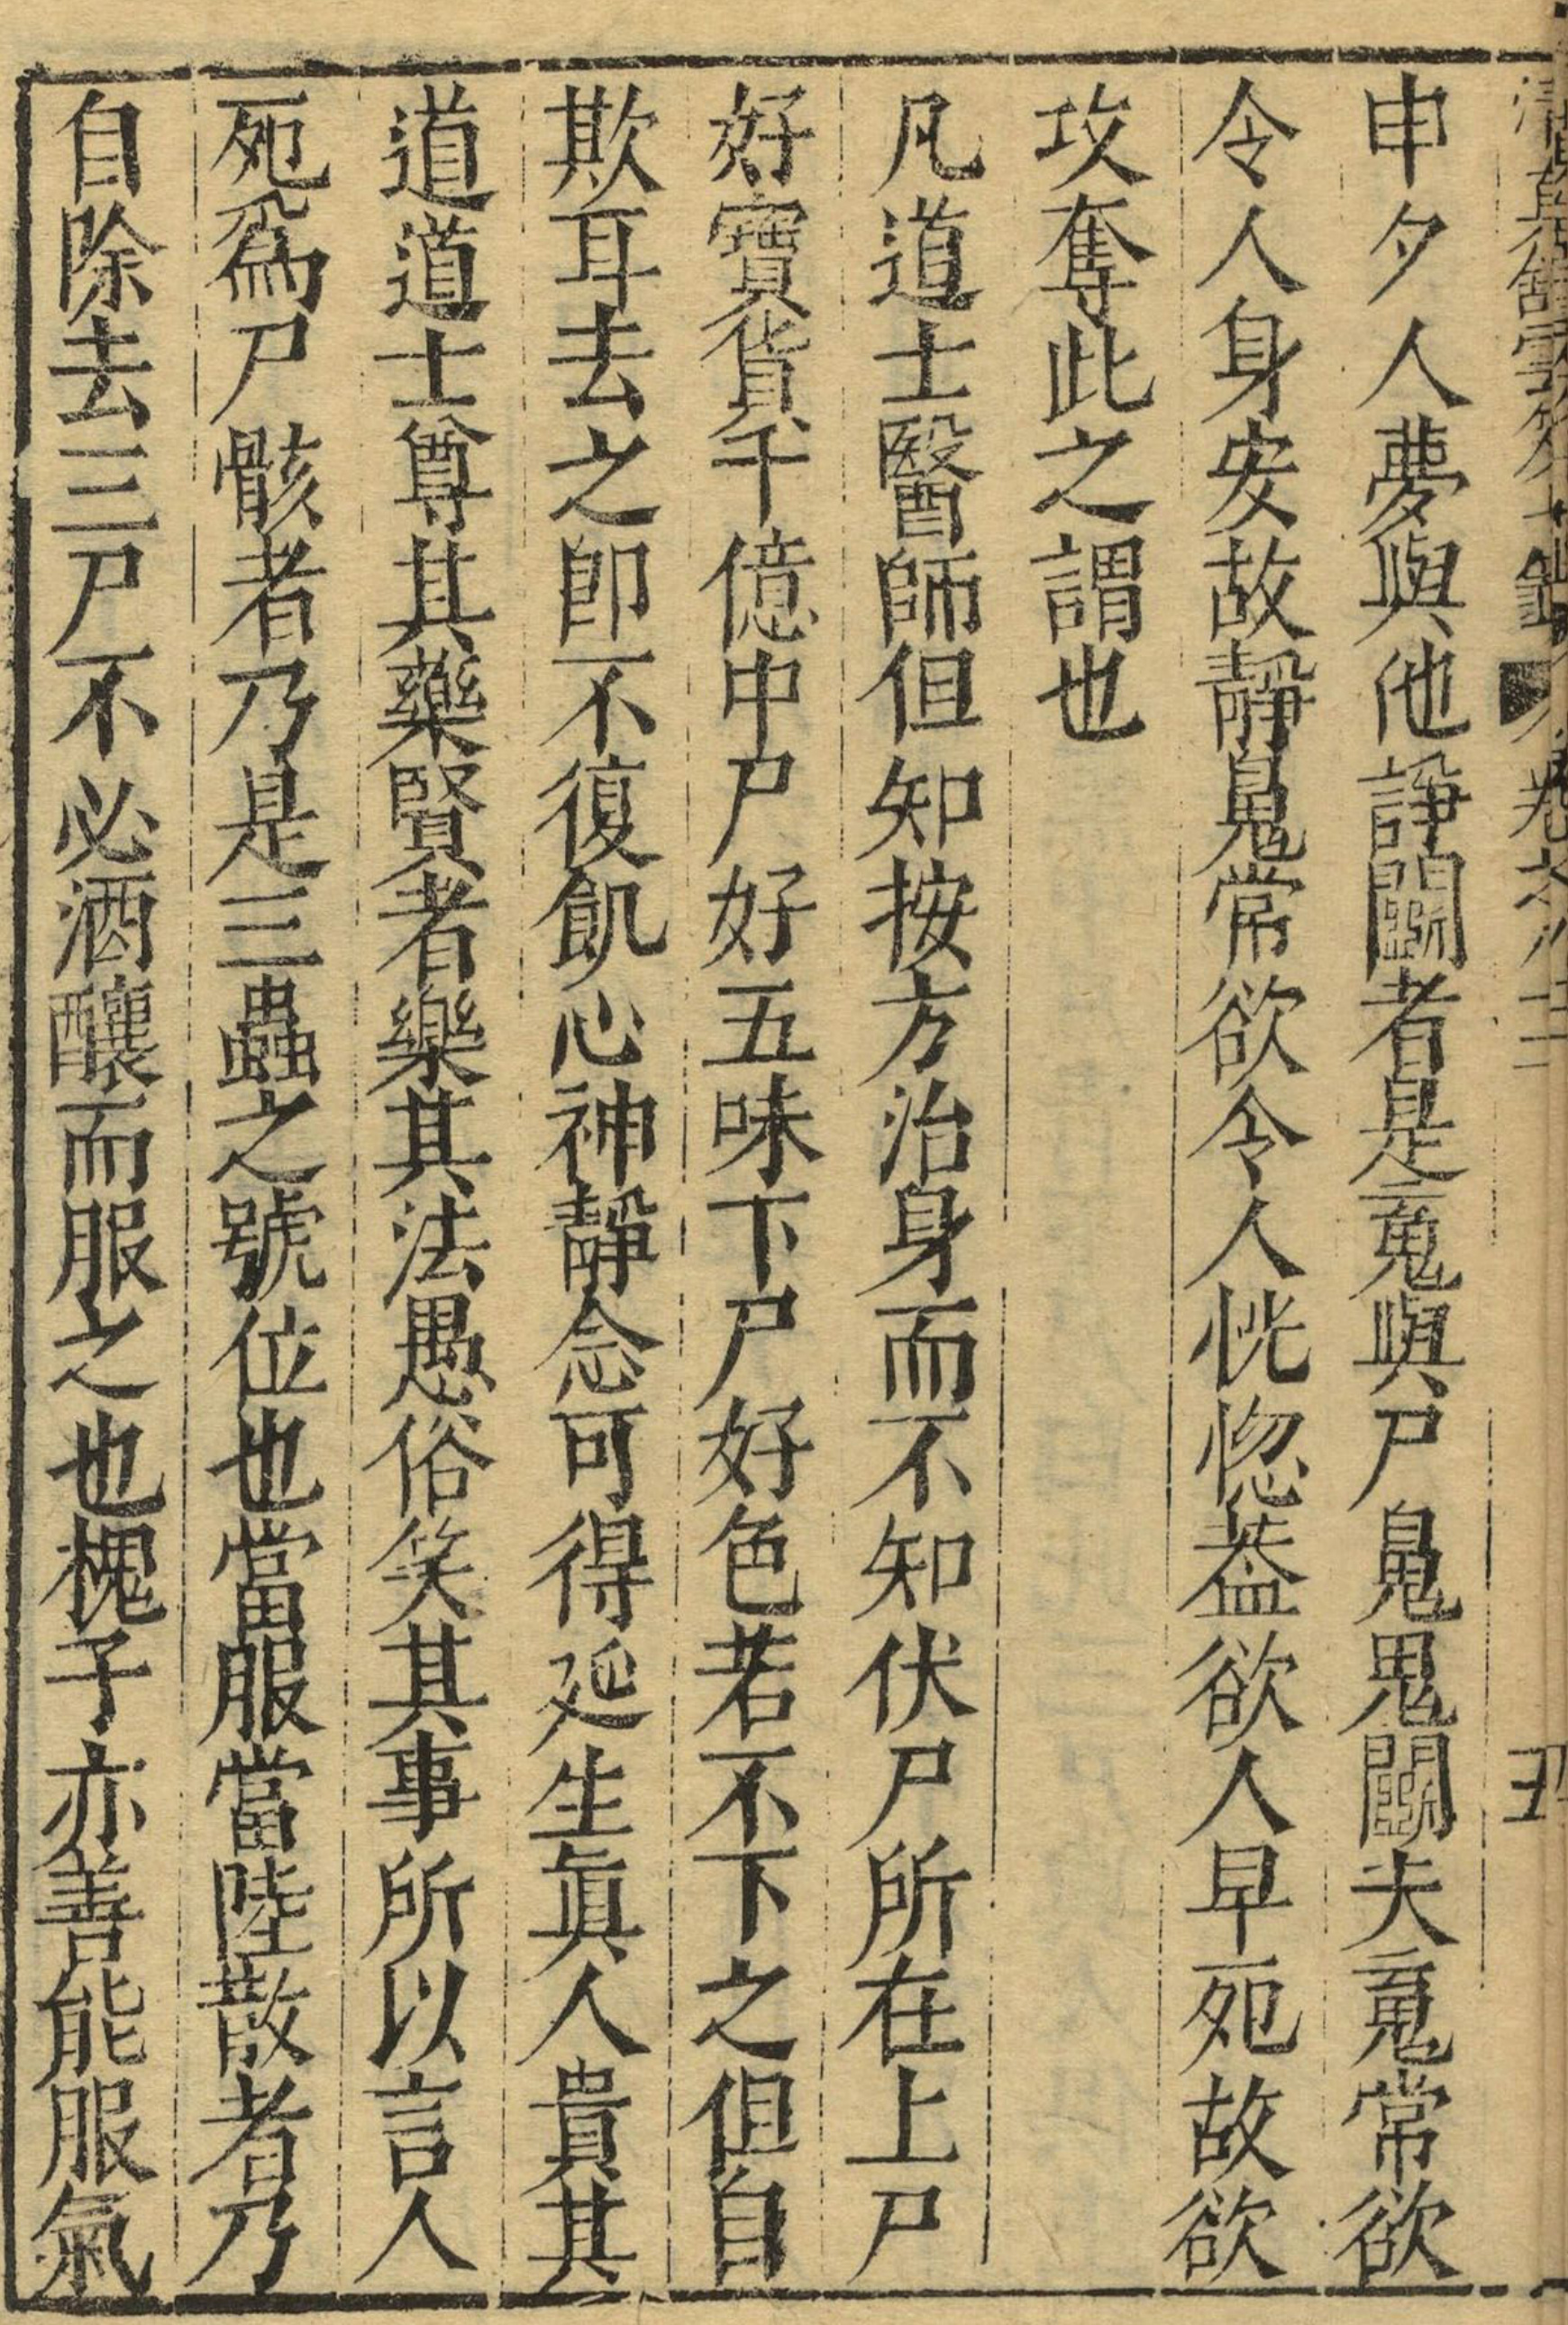 申夕人夢與他諍鬬者是䰟與尸鬼鬼鬬夫䰟常欲
令人身安故靜鬼常欲令人恍惚葢欲人早死故欲
攻奪此之謂也
凡道士醫師但知按方治身而不知伏尸所在上尸
好寶貨千億中尸好五味下尸好色若不下之但自
欺耳去之卽不復飢心神靜念可得延生眞人貴其
道道士尊其藥賢者樂其法愚俗笑其事所以言人
死爲尸骸者乃是三蟲之號位也當服當陸散者乃
自除去三尸不必酒釀而服之也槐子亦善能服氣